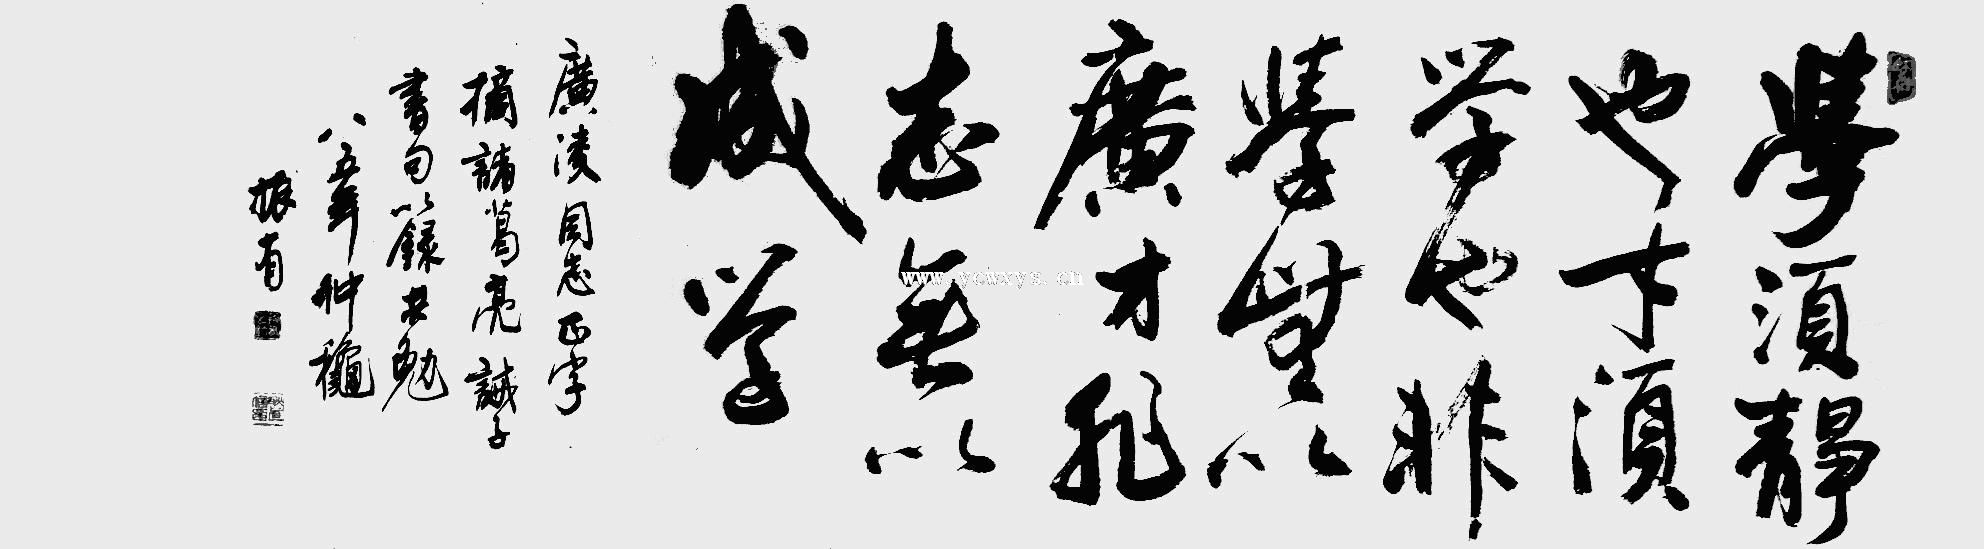 學須靜
也才須
学也非
學無以
廣才非
志無以
成学
廣淩同志正字
摘諸葛亮誡子
書句以録共勉
八五年仲龝
振有